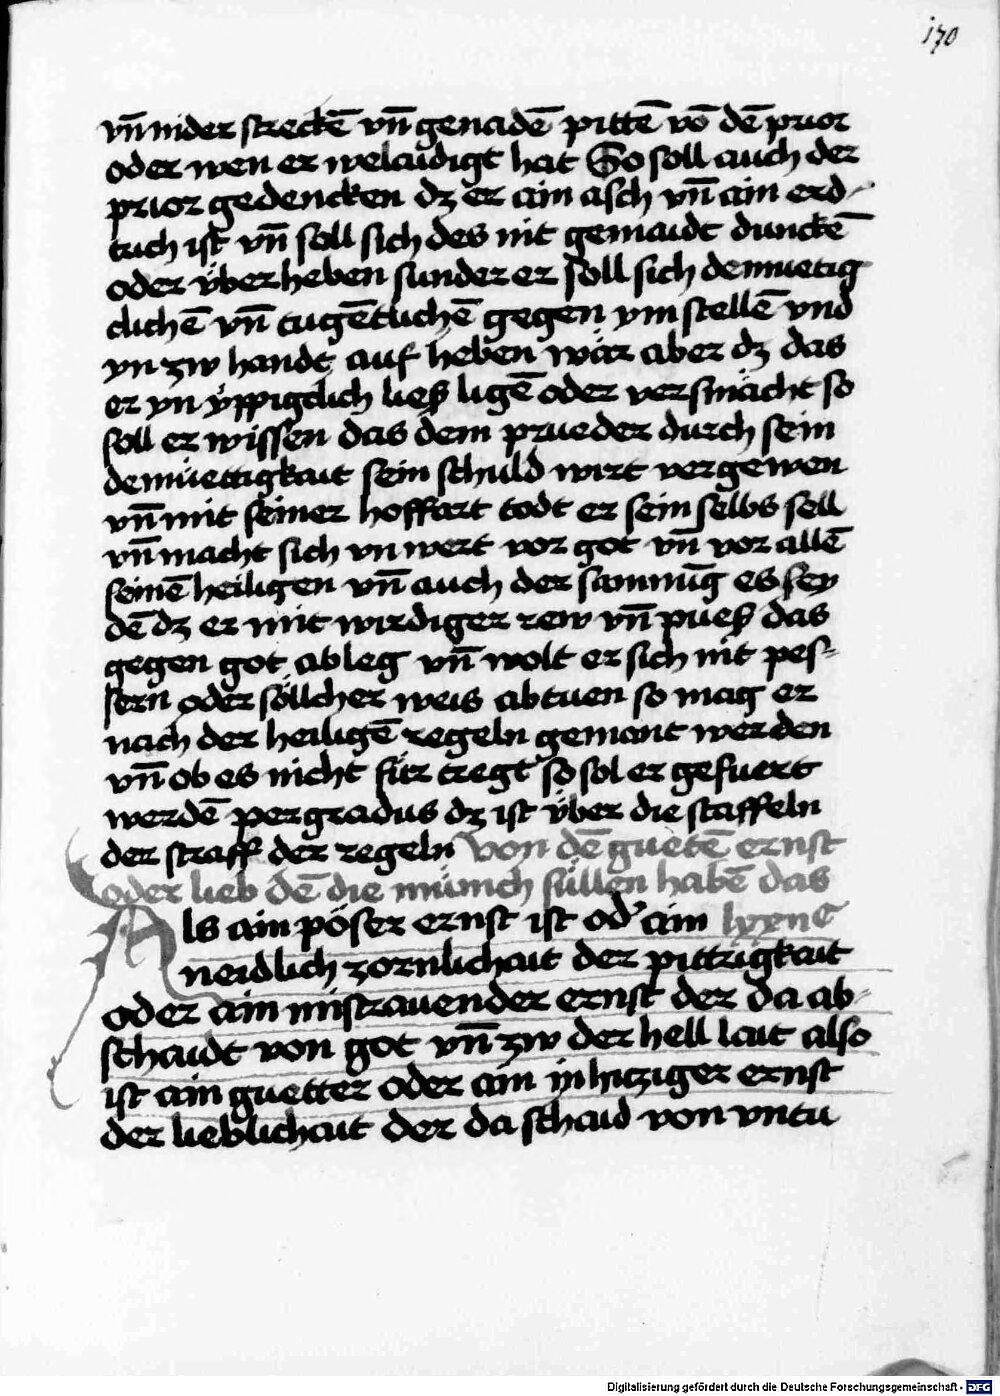 170
vn̄ nider streckē vn̄ genadē pittē vō dē prior
oder wen er welaidigt hat So soll auch der
prior gedencken dʒ er ain asch vn̄ ain erd-
tuch ist vn̄ soll sich des nit gemaidt dunckē
oder v̈ber heben sunder er soll sich demuetig
clichē vn̄ tugētlichē gegen ym stellē vnd
yn zw handt auf heben wär aber dʒ das
er yn ÿppigclich ließ ligē oder versmächt so
soll er wissen das dem prueder durch sein
demüettigkait sein schuld wirt vergewen
vn̄ mit seiner hoffart todt er sein selbs sell
vn̄ macht sich vn wert vor got vn̄ vor allē
seinē heiligen vn̄ auch der samnūg es sey
dē dʒ er mit wirdiger rew vn̄ pueß das
gegen got ableg vn̄ wolt er sich nit pes-
sern oder söllcher weis abtuen so mag er
nach der heiligē regeln gemant werden
vn̄ ob es nicht für tregt so sol er gefuert
werdē per gradus dʒ ist v̈ber die staffeln
der straff der regeln von dē guetē ernst
oder lieb dē die münich süllen habē das
Als ain pöser ernst ist od' ain lxxii c
neidlich zornlichait der pittrigkait
oder ain mistrauender ernst der da ab-
schaidt von got vn̄ zw der hell lait also
ist ain guetter oder ain inhitziger ernst
der lieblichait der da schaid von vntu
Digitalisierung gefördert durch die Deutsche Forschungsgemeinschaft - DFG